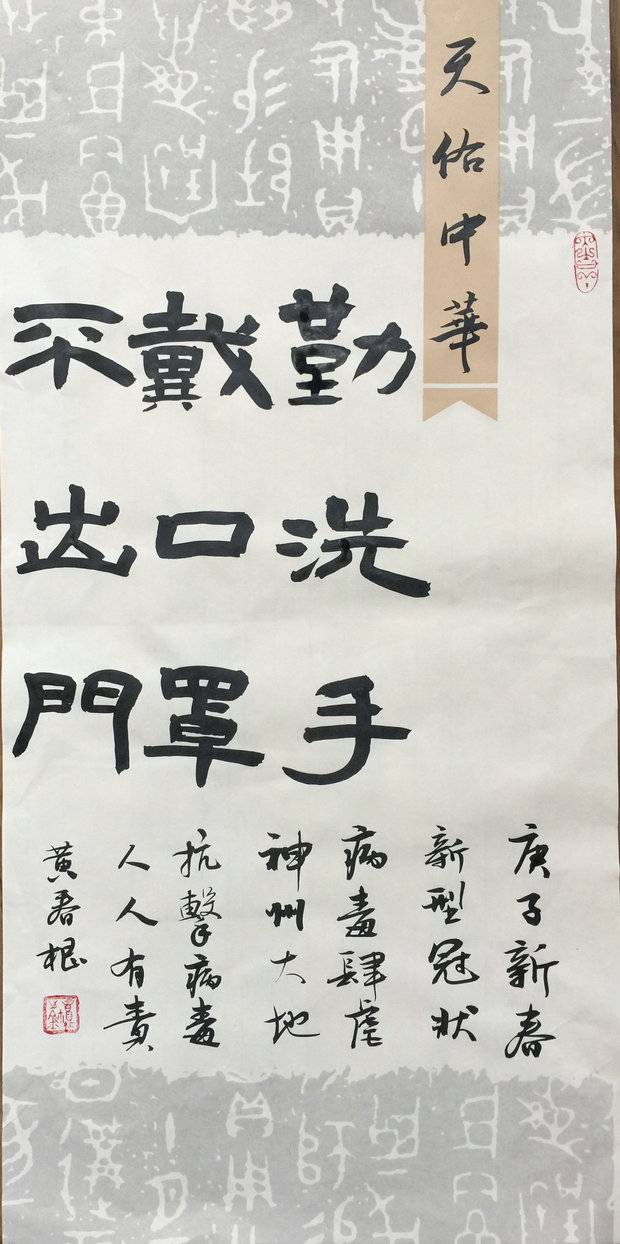 天佑中華
勤洗手
戴口罩
不出門
庚子新春
新型冠状
病毒肆虐
神州大地
抗擊病毒
人人有責
黄春根